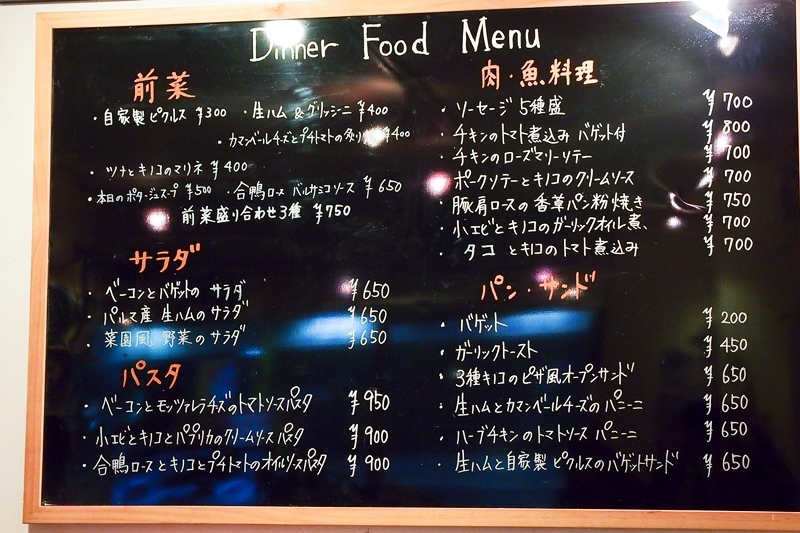 Dinner Food Menu
前菜
・自家製ピクルス ¥300 ・生ハム&グリッシーニ ¥400
・カマンベールチーズとプチトマトの炙り焼 ¥400
・ツナとキノコのマリネ ¥400
・本日のポタージュスープ ¥500 ・合鴨ロース バルサミコソース ¥650
前菜盛り合わせ3種 ¥750
サラダ
・ベーコンとバゲットの サラダ ¥650
・パルマ産 生ハムのサラダ ¥650
・菜園風 野菜のサラダ ¥650
パスタ
・ベーコンとモッツァレラチーズのトマトソースパスタ ¥950
・小エビとキノコとパプリカのクリームソースパスタ ¥900
・合鴨ロースとキノコとプチトマトのオイルソースパスタ ¥900
肉・魚料理
・ソーセージ 5種盛 ¥700
・チキンのトマト煮込み バゲット付 ¥800
・チキンのローズマリーソテー ¥700
・ポークソテーとキノコのクリームソース ¥700
・豚肩ロースの香草パン粉焼き ¥750
・小エビとキノコのガーリックオイル煮 ¥700
・タコ とキノコのトマト煮込み ¥700
パン・サンド
・バゲット ¥200
・ガーリックトースト ¥450
・3種キノコのピザ風オープンサンド ¥650
・生ハムとカマンベールチーズの パニーニ ¥650
・ハーブチキンのトマトソース パニーニ ¥650
・生ハムと自家製 ピクルスのバゲットサンド ¥650